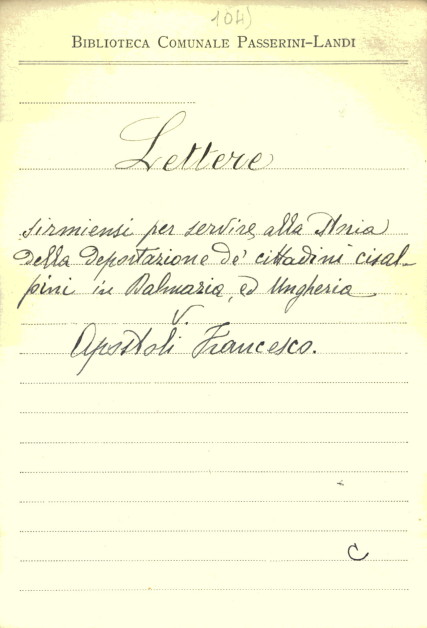 104)
BIBLIOTECA COMUNALE PASSERINI-LANDI
Lettere
sirmiensi per servire alla Storia
della deportazione de' cittadini cisal-
pini in Dalmazia, ed Ungheria
V.
Apostoli Francesco.
C